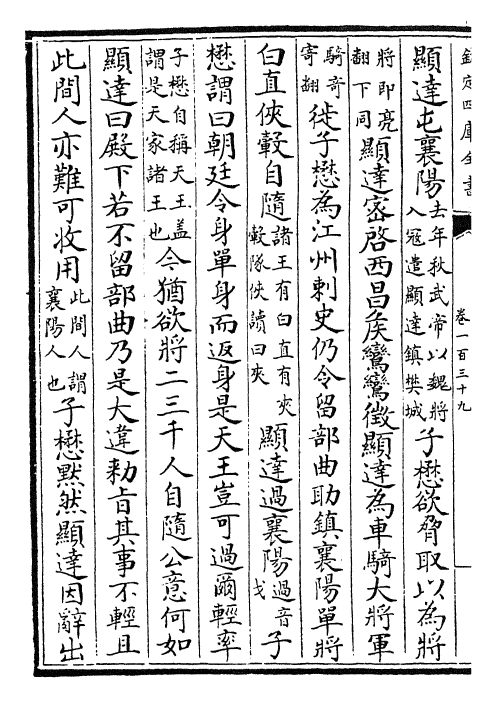 欽定四庫全書
卷一百三十九
顯達屯襄陽去年秋武帝以魏將入冦遣顯達鎮樊城子懋欲脅取以為將
將即亮翻下同顯達密啓西昌矦鸞鸞徴顯達為車騎大將軍
騎竒寄翻徙子懋為江州刺史仍令留部曲助鎮襄陽單將
白直俠轂自隨諸王有白直有夾轂隊俠讀曰夾顯達過襄陽過音戈子
懋謂曰朝廷令身單身而返身是天王豈可過爾輕率
子懋自稱天王盖謂是天家諸王也今猶欲將二三千人自隨公意何如
顯達曰殿下若不留部曲乃是大違勑㫖其事不輕且
此間人亦難可收用此間人謂襄陽人也子懋黙然顯達因辭出